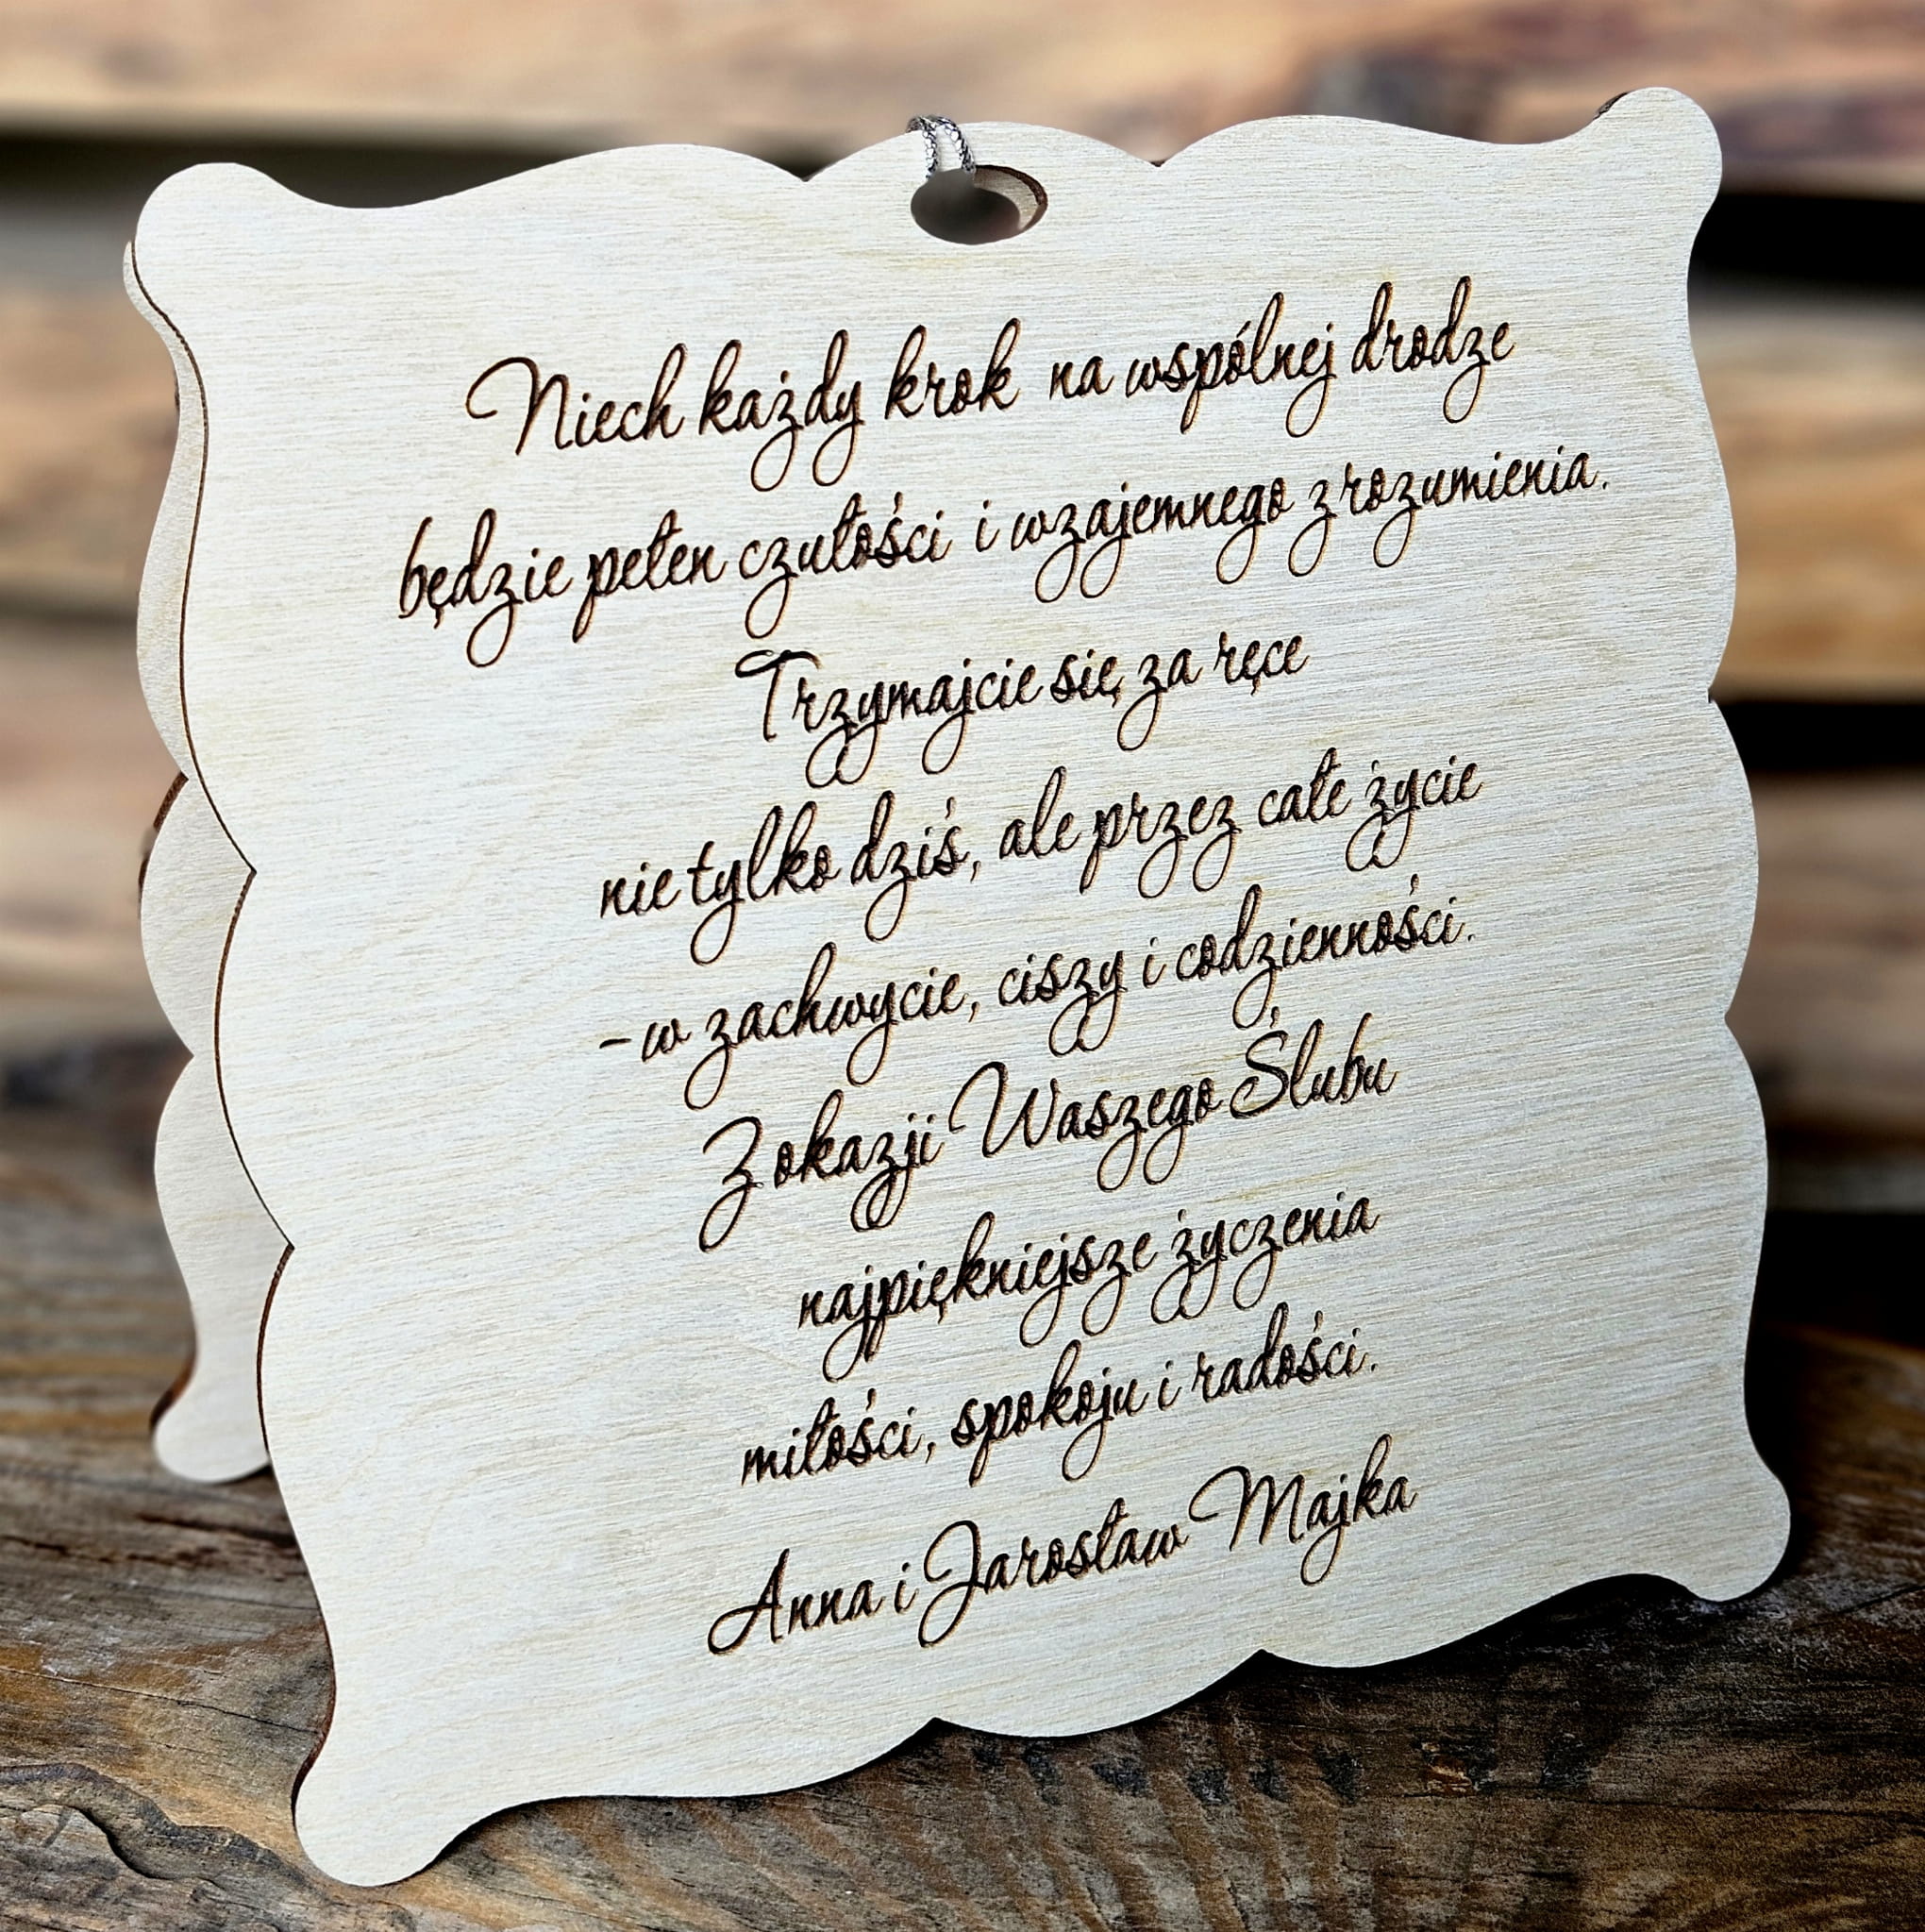 Niech każdy krok na wspólnej drodze
będzie pełen czułości i wzajemnego zrozumienia.
Trzymajcie się za ręce
nie tylko dziś, ale przez całe życie
- w zachwycie, ciszy i codzienności.
Z okazji Waszego Ślubu
najpiękniejsze życzenia
miłości, spokoju i radości.
Anna i Jarosław Majka